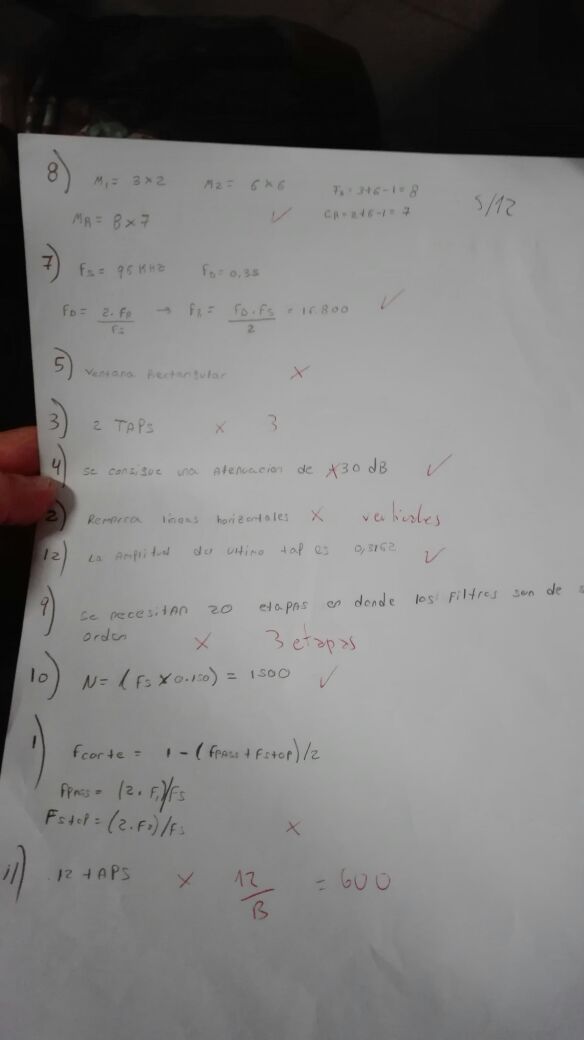 8) M1= 3x2 M2= 6x6 FA= 3+6-1=8 5/12
MA= 8x7 ✓ CA=2+6-1=7
7) Fs= 96 KHz FD=0,35
FD= 2.FA/Fs → FA= FD.Fs/2 = 16.800 ✓
5) Ventana Rectangular x
3) 2 TAPs x 3
4) se consigue una Atenuacion de 30 dB ✓
2) Remarca lineas horizontales x verticales
12) La Amplitud du ultimo tap es 0,3162 ✓
9) se necesitan 20 etapas en donde los filtros son de
orden x 3 etapas
10) N= (Fs x 0.150) = 1500 ✓
1) Fcorte = 1-(FPASS+FSTOP)/2
FPASS= (2.F1)/Fs
FSTOP= (2.F2)/Fs x
11) 12 tAPS x 12/B = 600